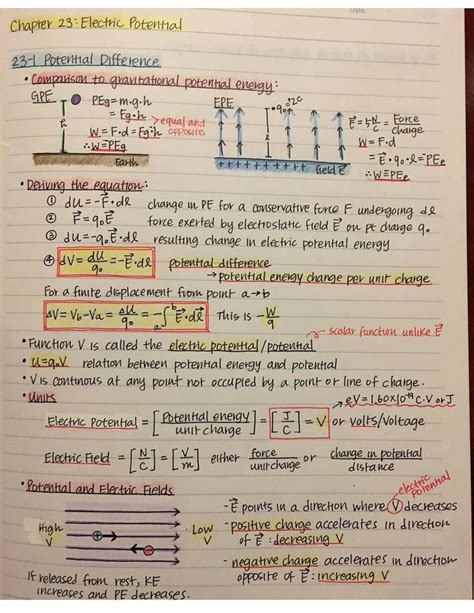 Date.
Chapter 23: Electric Potential
23-1 Potential Difference
• Comparison to gravitational potential energy:
GPE
PEg = m·g·h
= Fg·h
W = F·d = Fg·h
∴ W = PEg
Earth
> equal and opposite
EPE
•q₀ = 2C
field E
E⃗ = 5 N/C = Force/Charge
W = F·d
= E⃗·q₀·l = PEe
∴ W = PEe
• Deriving the equation:
① dU = -F⃗·dl change in PE for a conservative force F undergoing dl
② F⃗ = q₀E⃗ force exerted by electrostatic field E⃗ on pt charge q₀
③ dU = -q₀E⃗·dl resulting change in electric potential energy
④ dV = dU/q₀ = -E⃗·dl potential difference
→ potential energy change per unit charge
For a finite displacement from point a→b
ΔV = Vb - Va = ΔU/q₀ = -∫ₐᵇ E⃗·dl This is -W/q
scalar function unlike E⃗
• Function V is called the electric potential/potential
• U = q₀V relation between potential energy and potential
• V is continous at any point not occupied by a point or line of charge.
• Units
eV = 1.60×10⁻¹⁹ C·V or J
Electric Potential = [Potential energy/unit charge] = [J/C] = V or volts/Voltage
Electric Field = [N/C] = [V/m] either force/unit charge or change in potential/distance
• Potential and Electric Fields
electric potential
High V
+
-
Low V
- E⃗ points in a direction where V decreases
- positive charge accelerates in direction
of E⃗: decreasing V
- negative charge accelerates in direction
opposite of E⃗: increasing V
If released from rest, KE
increases and PE decreases.